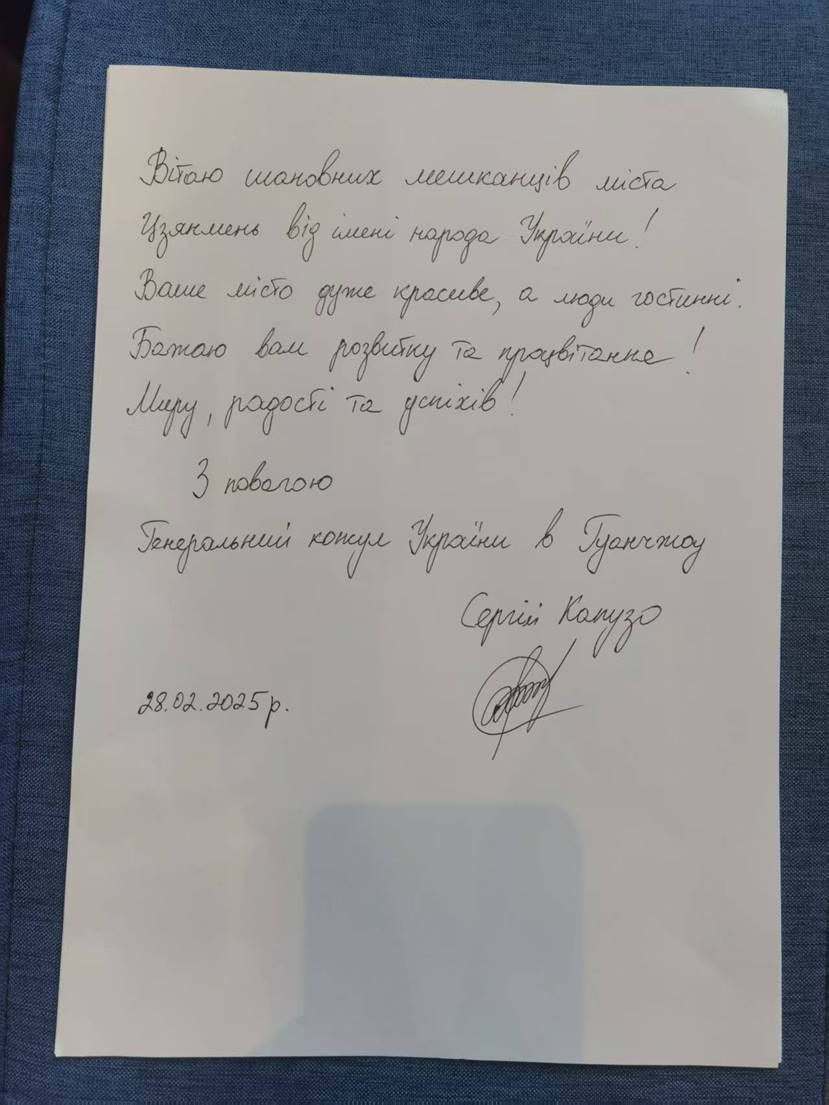 Вітаю шановних мешканців міста
Цзянмень від імені народа України!
Ваше місто дуже красиве, а люди гостинні.
Бажаю вам розвитку та процвітання!
Миру, радості та успіхів!
З повагою
Генеральний консул України в Гуанчжоу
Сергій Капузо
28.02.2025р.